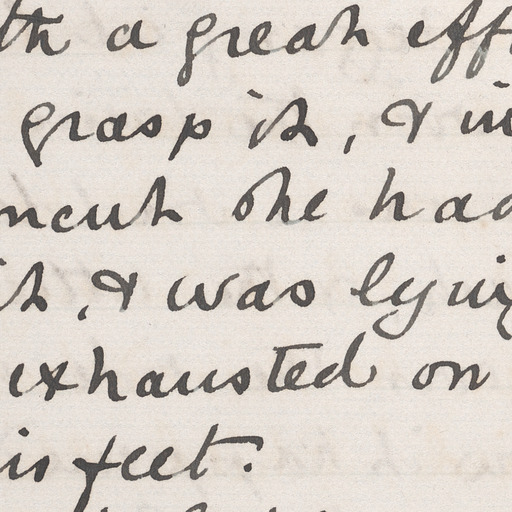 th a great eff
grasp it, & in
ment she had
it, & was lying
exhausted on
is feet.